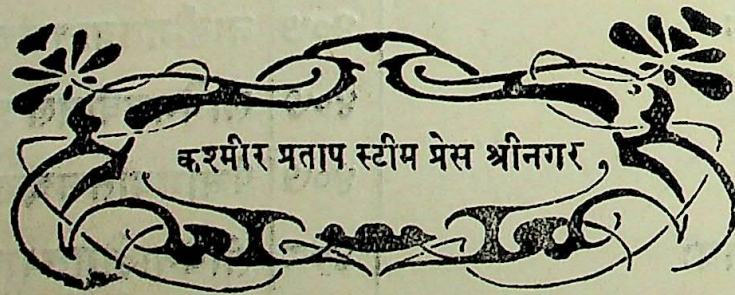 कश्मीर प्रताप स्टीम प्रेस श्रीनगर